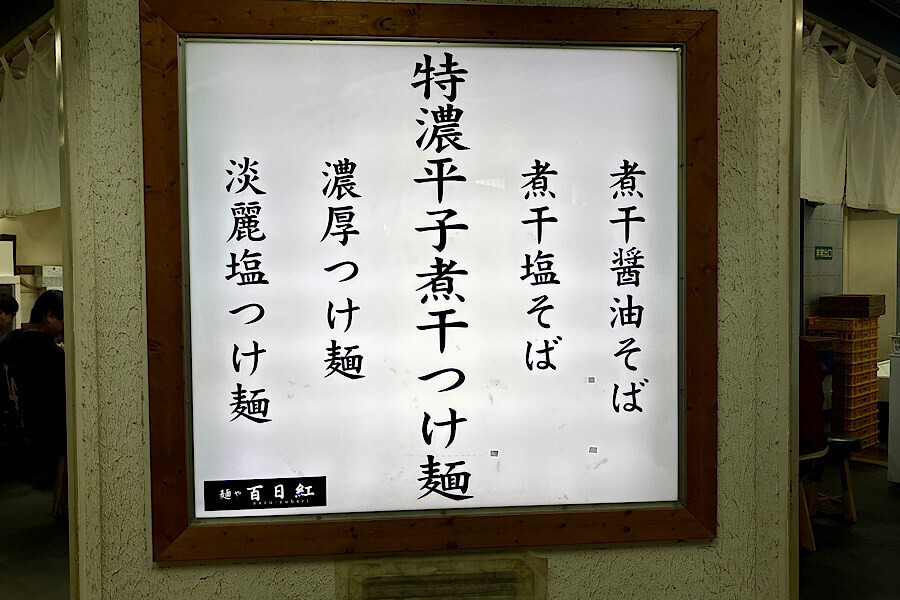 煮干醤油そば
煮干塩そば
特濃平子煮干つけ麺
濃厚つけ麺
淡麗塩つけ麺
麺や 百日紅
sarusuberi
非常出口